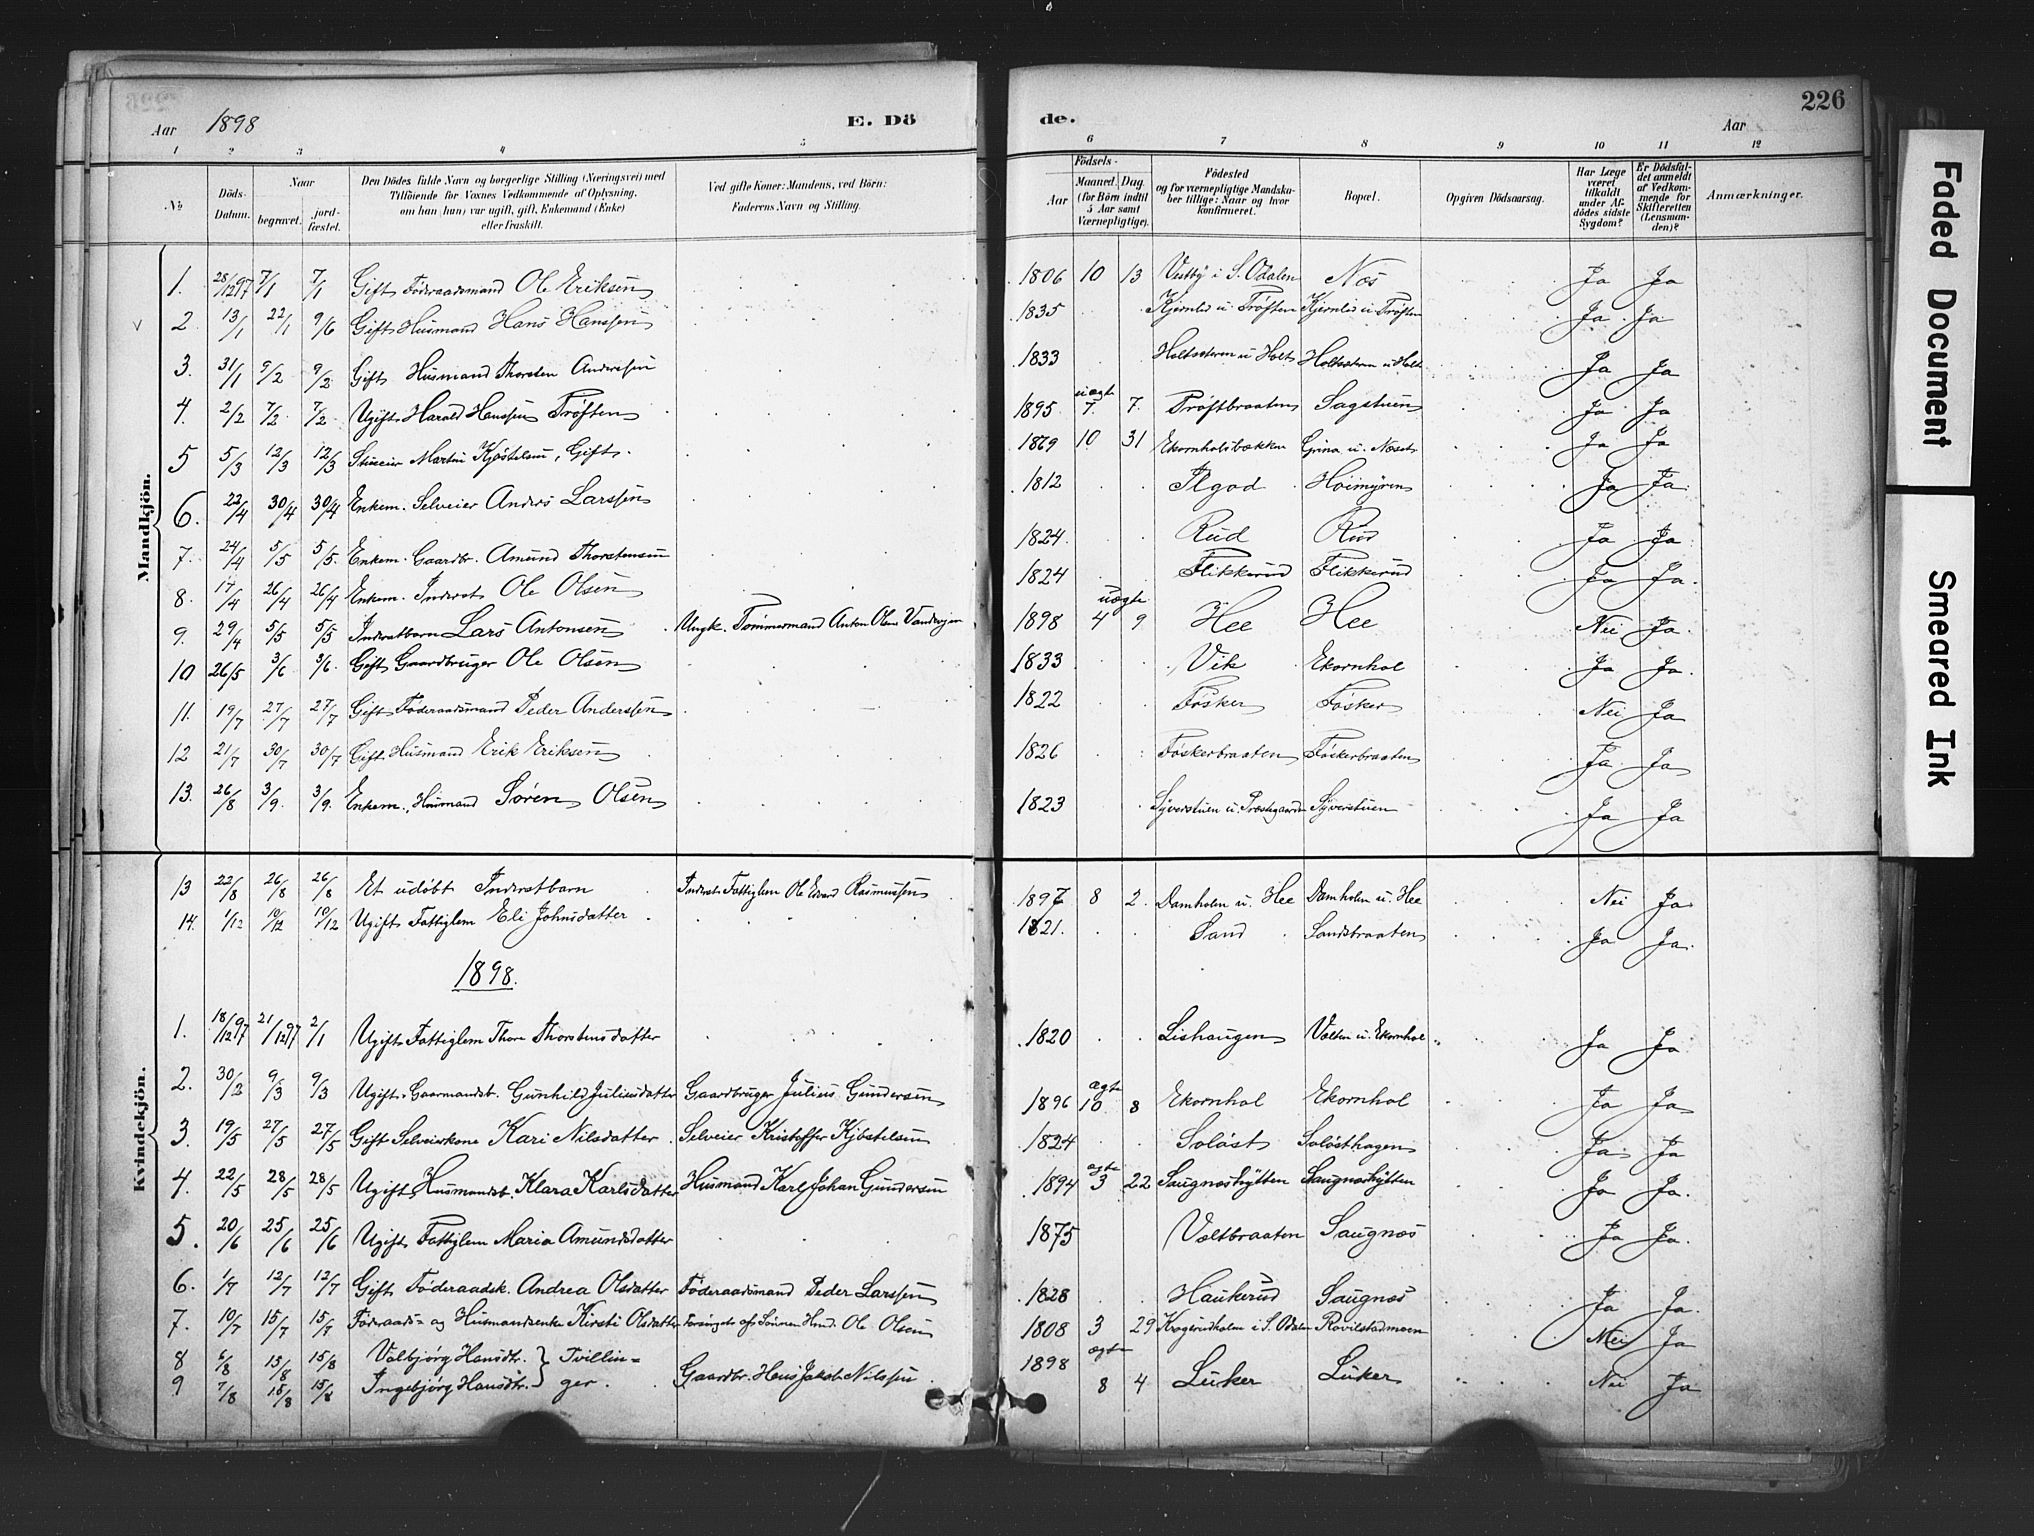 226
Aar 1898 E. Dö de. Aar
1 2 3 4 5 6 7 8 9 10 11 12
No Döds-Datum. Naar begravet. jordfæstet. Den Dödes fulde Navn og borgerlige Stilling (Næringsvei) med Tilföiende for Voxnes Vedkommende af Oplysning, om han (hun) var ugift, gift, Enkemand (Enke) eller fraskilt. Ved gifte Koner: Mandens, ved Börn: Faderens Navn og Stilling. Födsels- Aar Maaned. Dag. (for Börn indtil 5 Aar samt Værnepligtige). Födested og for værnepligtige Mandskaber tillige: Naar og hvor konfirmeret. Bopæl. Opgiven Dödsaarsag. Har Læge været tilkaldt under Afdödes sidste Sygdom? Er Dödsfaldet anmeldt af Vedkommende for Skifteretten (Lensmanden)? Anmærkninger.
Mandkjön.
1. 28/12 97 7/1 7/1 Gift Föderaadsmand Ole Eriksen 1806 10 13 Vestby i S. Odalen Næs Ja Ja
2. 13/1 22/1 9/6 Gift Husmand Hans Hanssen 1835 Kjernlid u. Tröften Kjernlid u. Tröften Ja Ja
3. 31/1 9/2 9/2 Gift Husmand Thorsten Anderssen 1833 Holtsæteren u Holt Holtsæteren u Holt Ja Ja
4. 2/2 7/2 7/2 Ugift Harald Hanssen Tröften 1895 uægte 7. 7. Tröftbraaten Sagstuen Ja Ja
5 5/3 12/3 12/3 Martin Kjöstelsen, Gift. 1869 10 31 Ekornholsbækken Grina u. Næset Ja Ja
6. 22/4 30/4 30/4 Enkem. Selveier Anders Larssen 1812 Höimyren Ja Ja
7. 24/4 5/5 5/5 Enkem. Gaardbr. Amund Thorstensen 1824 Rud Rud Ja Ja
8. 17/4 26/4 26/4 Enkem. Inderst Ole Olsen 1824 Flikkerud Flikkerud Ja Ja
9. 29/4 5/5 5/5 Inderstbarn Lars Antonsen Ungk. Tömmermand Anton Olsen 1898 uægte 4 9 Hee Hee Nei Ja
10 26/5 3/6 3/6 Gift Gaardbruger Ole Olsen 1833 Vik Ekornhol Ja Ja
11. 19/7 27/7 27/7 Gift Föderaadsmand Peder Anderssen 1822 Fösker Fösker Nei Ja
12 21/7 30/7 30/7 Gift Husmand Erik Eriksen 1826 Föskerbraaten Föskerbraaten Ja Ja
13. 26/8 3/9. 3/9. Enkem. Husmand Sören Olsen 1823 Syverstuen u. Præstegaarden Syverstuen Ja Ja
Kvindekjön.
13 22/8 26/8 26/8 Et udöbt Inderstbarn Inderst Fattiglem Ole Edvard Rasmussen 1897 8 2. Damholen u. Hee Damholen u. Hee Nei Ja
14. 1/12 10/12 10/12 Ugift Fattiglem Eli Johnsdatter 1821. Sand Sandsbraaten Ja Ja
1898.
1. 18/12 97 21/12 97 2/1 Ugift Fattiglem Thore Thorstensdatter 1820 Lishaugen Volten u. Ekornhol Ja Ja
2. 30/2 9/3 9/3 Ugift Gaarmandsb. Gunhild Juliusdatter Gaardbruger Julius Gundersen 1896 ægte 10 8 Ekornhol Ekornhol Ja Ja
3. 19/5 27/5 27/5 Gift Selveierkone Kari Nilsdatter Selveier Kristoffer Kjöstelsen 1824 Solöst Solösthagen Ja Ja
4. 22/5 28/5 28/5 Ugift Husmandsb. Klara Karlsdatter Husmand Karl Johan Gundersen 1894 ægte 3 22 Saugnæshytten Saugnæshytten Ja Ja
5. 20/6 25/6 25/6 Ugift Fattiglem Maria Amundsdatter 1875 Voltbraaten Saugnæs Ja Ja
6. 1/7 12/7 12/7 Gift Föderaadsk. Andrea Olsdatter Föderaadsmand Peder Larssen 1828 Haukerud Saugnæs Ja Ja
7. 10/7 15/7 15/7 Föderaads- og Husmandsenke Kirsti Olsdatter Forsörget af Sönnen Hmd. Ole Olsen 1808 3 29 i S. Odalen Rovilstadmoen Nei Ja
8 6/8 13/8 15/8 Valbjörg Hansdtr. } Tvillin- ægte 1898
9 7/8 15/8 15/8 Ingebjörg Hansdtr. } ger Gaardbr. Hans Jakob Nilssen 8 4 Luker Luker Nei Ja
Faded Document
Smeared Ink